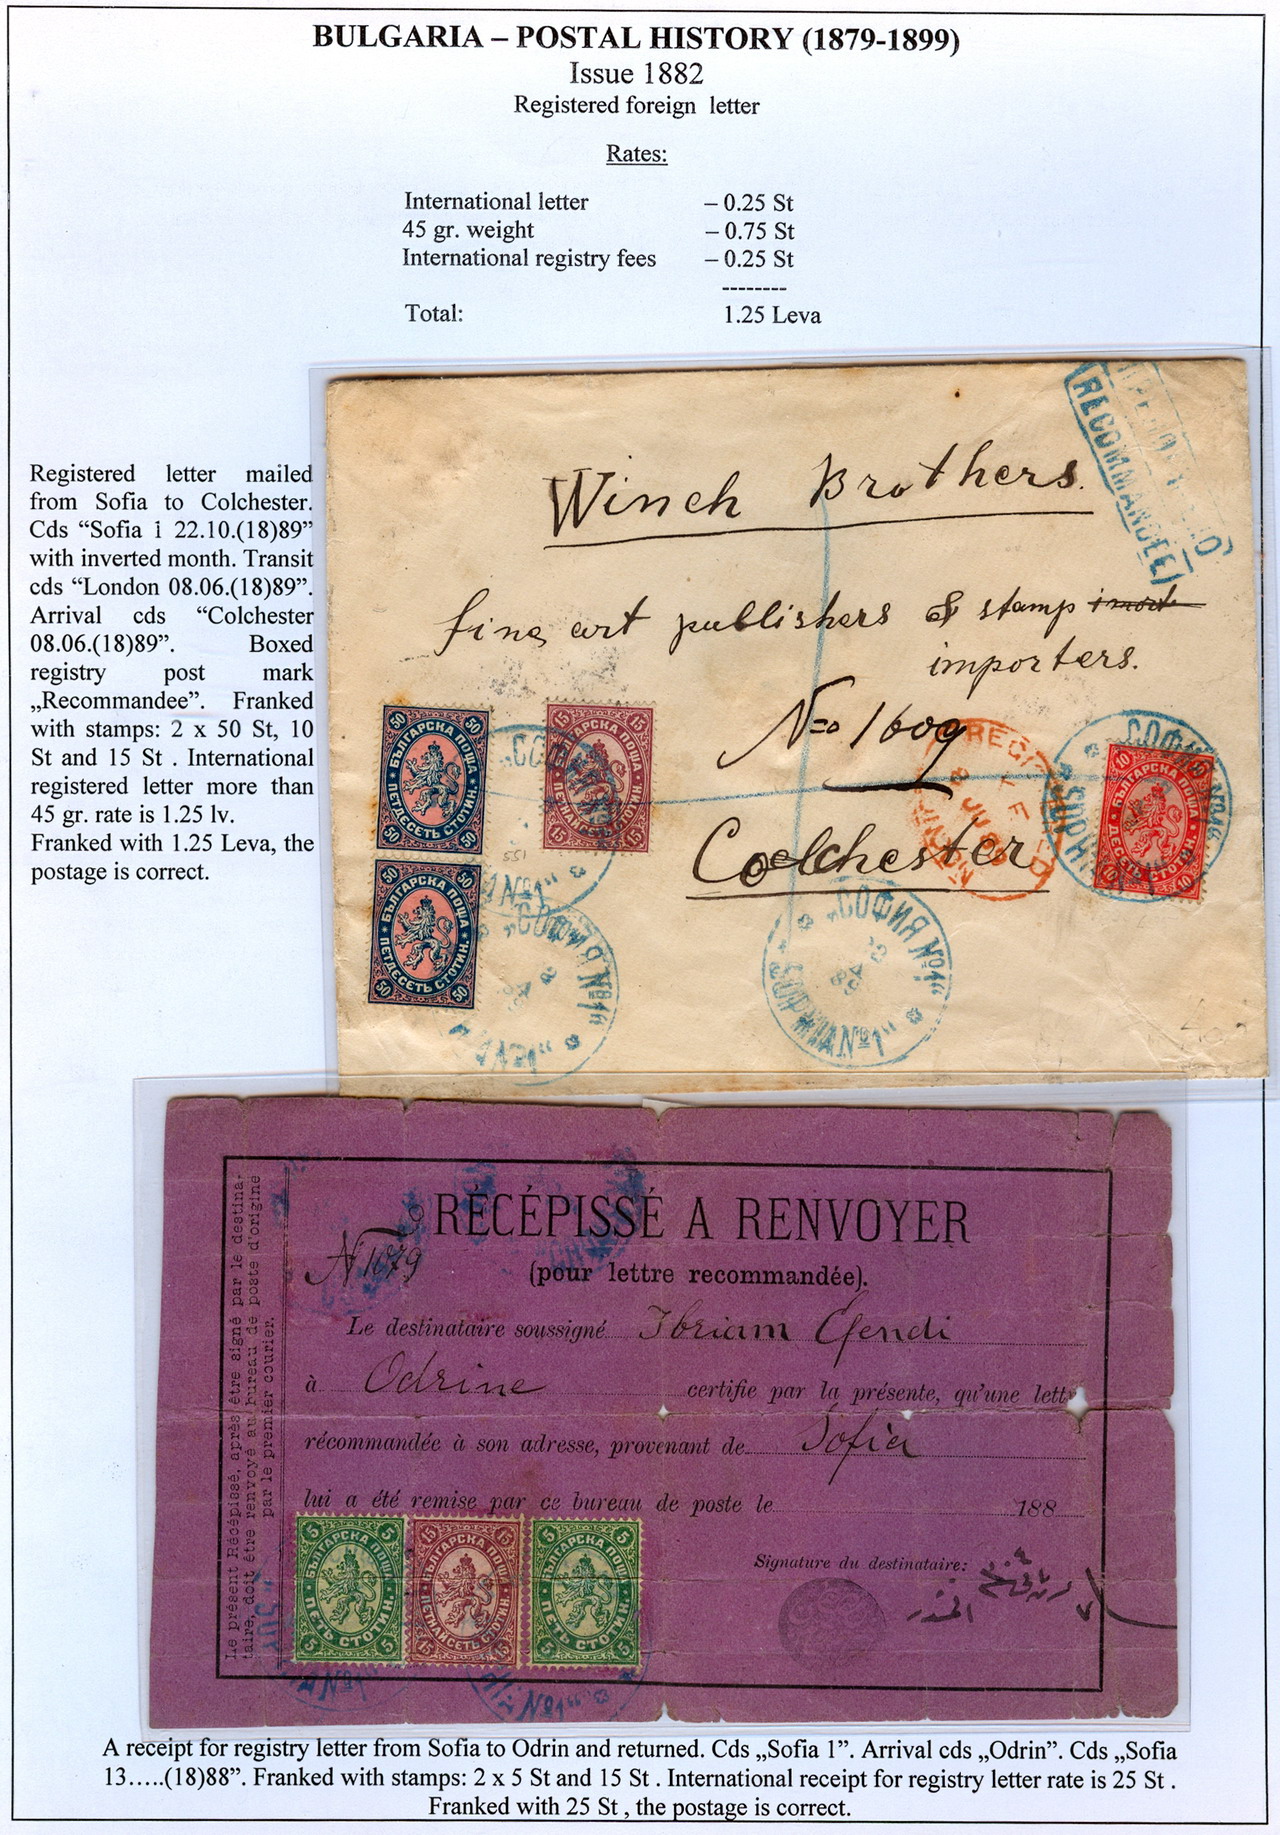 BULGARIA – POSTAL HISTORY (1879-1899)
Issue 1882
Registered foreign letter
Rates:
International letter – 0.25 St
45 gr. weight – 0.75 St
International registry fees – 0.25 St
--------
Total: 1.25 Leva
Registered letter mailed
from Sofia to Colchester.
Cds “Sofia 1 22.10.(18)89”
with inverted month. Transit
cds “London 08.06.(18)89”.
Arrival cds “Colchester
08.06.(18)89”. Boxed
registry post mark
„Recommandee”. Franked
with stamps: 2 x 50 St, 10
St and 15 St . International
registered letter more than
45 gr. rate is 1.25 lv.
Franked with 1.25 Leva, the
postage is correct.
RECOMMANDEE
Winch Brothers.
fine art publishers & stamp
importers.
No 1609
Colchester
50 50
БЪЛГАРСКА ПОЩА
ПЕТДЕСЕТЬ СТОТИН.
50 50
БЪЛГАРСКА ПОЩА
ПЕТДЕСЕТЬ СТОТИН.
50 50
15 15
БЪЛГАРСКА ПОЩА
15 15
551
10
БЪЛГАРСКА ПОЩА
ДЕСЕТЬ СТОТИН.
10 10
„СОФИЯ №1“
„СОФИЯ №1“
Le présent Récépissé, après être signé par le destina-
taire, doit être renvoyé au bureau de poste d'origine
par le premier courier.
RÉCÉPISSÉ A RENVOYER
N 1079
(pour lettre recommandée).
Le destinataire soussigné Ibriam Efendi
à Odrine certifie par la présente, qu'une lett
récommandée à son adresse, provenant de Sofia
lui a été remise par ce bureau de poste le 188
Signature du destinataire:
5 5
БЪЛГАРСКА ПОЩА
ПЕТЬ СТОТИН.
5 5
15 15
БЪЛГАРСКА ПОЩА
ПЕТНАЙСЕТЬ СТОТИН.
15 15
5 5
БЪЛГАРСКА ПОЩА
ПЕТЬ СТОТИН.
5 5
A receipt for registry letter from Sofia to Odrin and returned. Cds „Sofia 1”. Arrival cds „Odrin”. Cds „Sofia
13.....(18)88”. Franked with stamps: 2 x 5 St and 15 St . International receipt for registry letter rate is 25 St .
Franked with 25 St , the postage is correct.